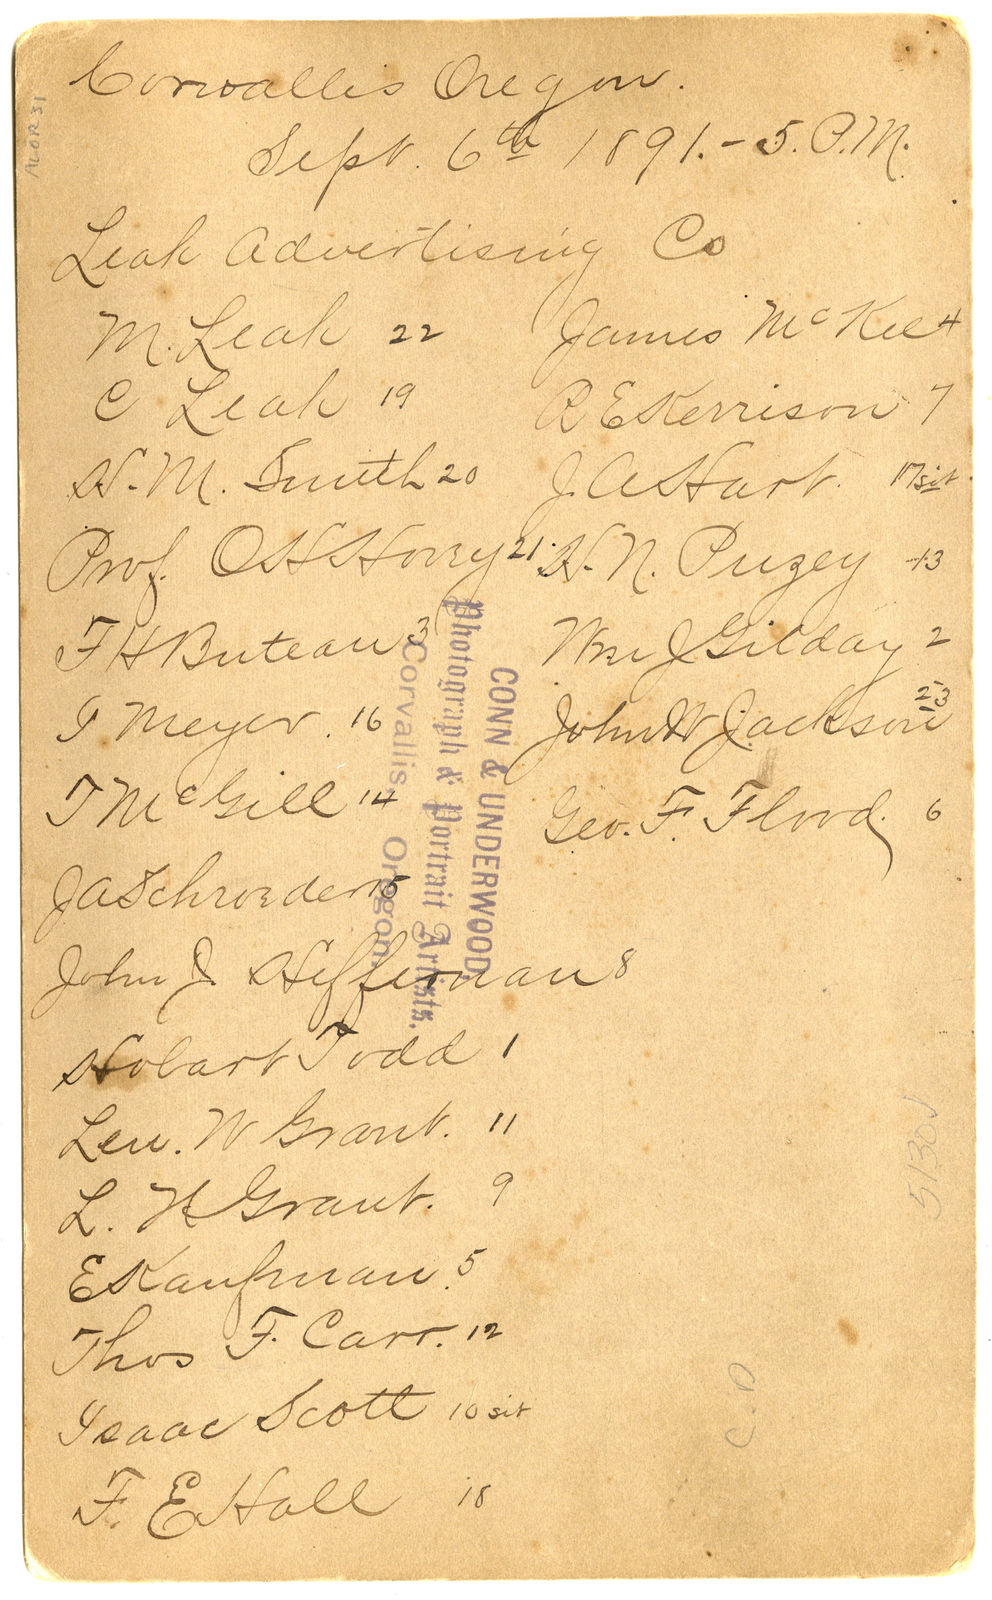 Corvallis Oregon.
Sept. 6th 1891. - 5. P.M.
Leak Advertising Co
M. Leak 22
C Leak 19
H. M. Smith 20
Prof. O H Horey 21
F H Buteau 3
J Meyer. 16
T McGill 14
J A Schroeder 15
John J Heffernan 8
Hobart Todd 1
Len. W Grant. 11
L. H Grant. 9
E Kaufman. 5
Thos F. Carr. 12
Isaac Scott 10 sit
F. E Hall 18
James McKee 4
R E Kerrison 7
J. A Hart. 17 sit.
H. N. Puzey 13
Wm J Gilday 2
John W Jackson 23
Geo. F. Flood. 6
CONN & UNDERWOOD,
Photograph & Portrait Artists,
Corvallis, Oregon.
5130J
C. D